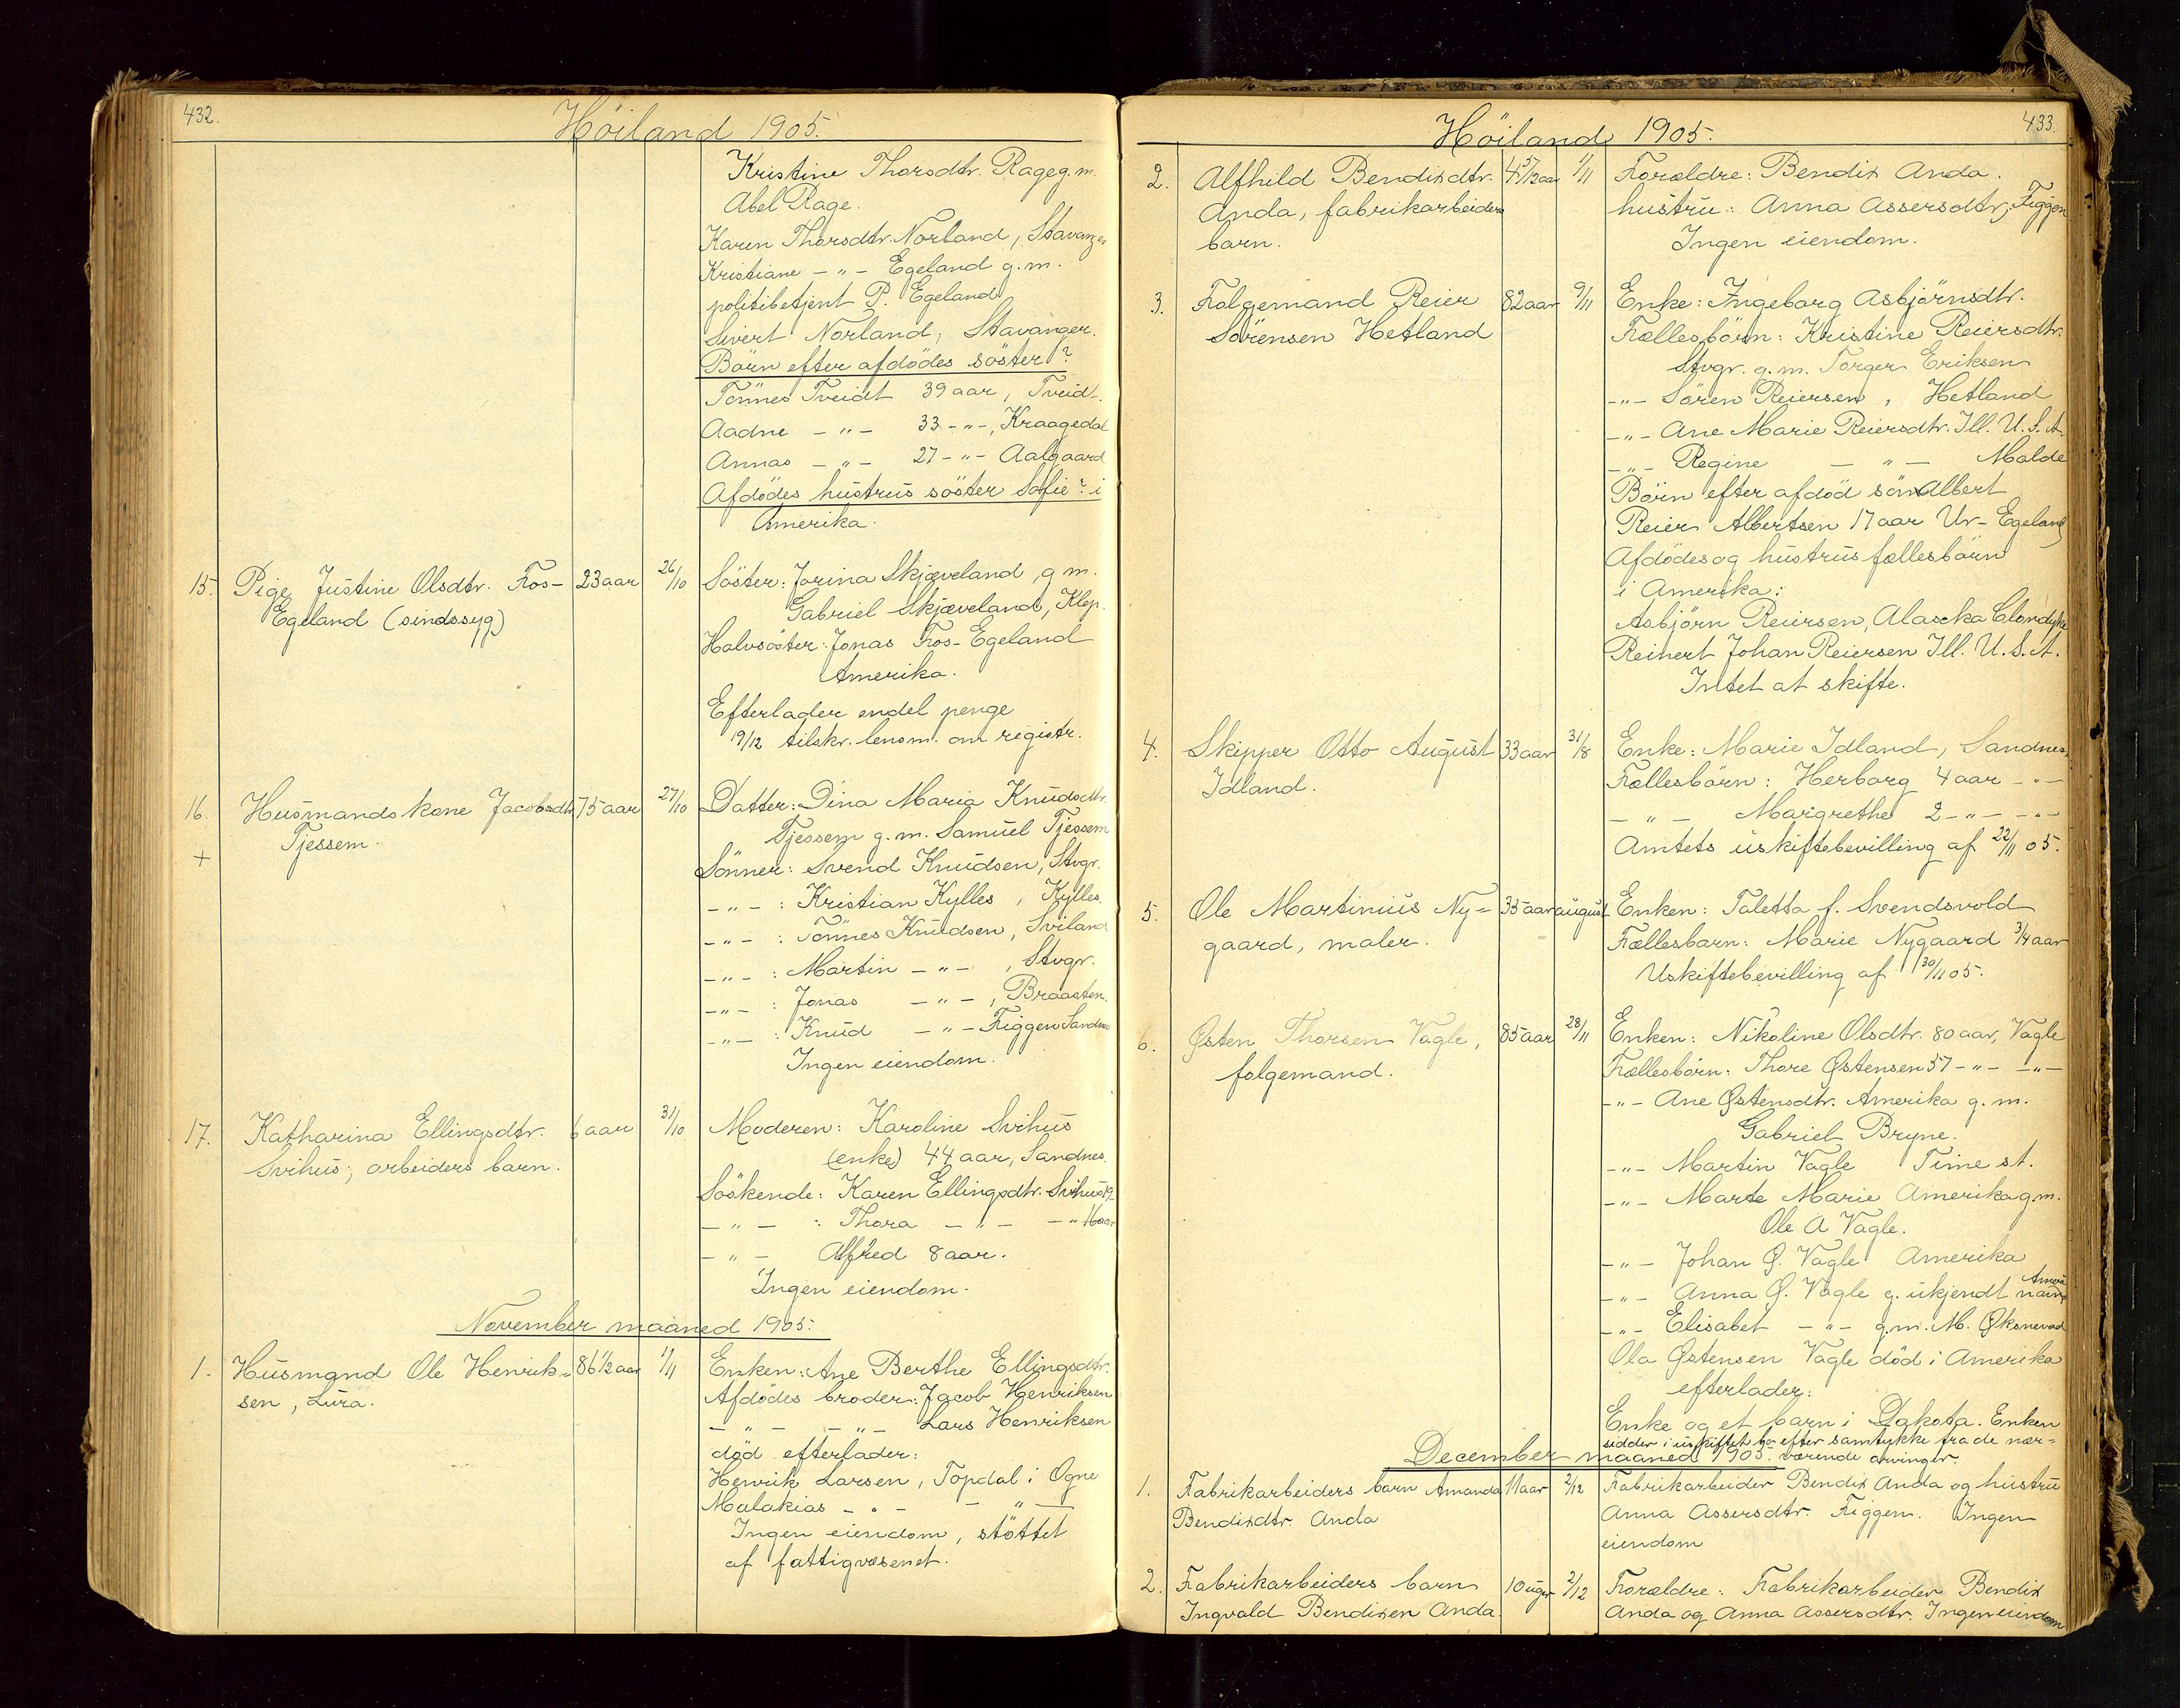 432.
Höiland 1905.
Kristine Thorsdtr. Rage g. m.
Abel Rage.
Karen Thorsdtr. Norland, Stavanger
Kristiane - " - Egeland g. m.
politibetjent P. Egeland
Sivert Norland, Stavanger.
Börn efter afdödes söster?
Tönnes Tveidt 39 aar, Tveidt.
Aadne - " - 33 - " -, Kraagedal
Annas - " - 27 - " - Aalgaard
Afdödes hustrus söster Sofie? i
Amerika.
15. Pige Justine Olsdtr. Fos- 23 aar 26/10 Söster: Jorina Skjæveland, g m.
Egeland (sindssyg) Gabriel Skjæveland, Klep.
Halvsöster: Jonas Fos-Egeland
Amerika.
Efterlader endel penge
19/12 tilskr. lensm. om registr.
16. Husmandskone Jacobsdtr. 75 aar 27/10 Datter: Dina Maria Knudsdtr.
+ Tjessem. Tjessem g. m. Samuel Tjessem
Sönner: Svend Knudsen, Stvgr.
- " - : Kristian Kylles, Kylles.
- " - : Tönnes Knudsen, Sviland
- " - : Martin - " - , Stvgr.
- " - : Jonas - " - , Braasten.
- " - : Knud - " - Figgen Sandnes
Ingen eiendom.
17. Katharina Ellingsdtr. 6 aar 31/10 Moderen: Karoline Svihus
Svihus, arbeiders barn. (enke) 44 aar, Sandnes.
Söskende: Karen Ellingsdtr. Svihus 19
- " - : Thora - " - - " 16 aar
- " - Alfred 8 aar.
Ingen eiendom.
November maaned 1905.
1. Husmand Ole Henrik= 86 1/2 aar 1/11 Enken: Ane Berthe Ellingsdtr.
sen, Lura. Afdödes broder: Jacob Henriksen
- " - - " - Lars Henriksen
död efterlader:
Henrik Larsen, Topdal i Ogne
Malakias - " - - " -
Ingen eiendom, stöttet
af fattigvæsenet.
433.
Höiland 1905.
2. Alfhild Bendixdtr. 4 5/12 aar 1/11 Forældre: Bendix Anda.
Anda, fabrikarbeiders hustru: Anna Assersdtr, Figgen
barn. Ingen eiendom.
3. Folgemand Reier 82 aar 9/11 Enke: Ingeborg Asbjörnsdtr.
Sörensen Hetland Fællesbörn: Kristine Reiersdtr.
Stvgr. g. m. Torger Eriksen
- " - Sören Reiersen, Hetland
- " - Ane Marie Reiersdtr. Ill. U. S. A.
- " - Regine - " - Malde
Börn efter afdöd sön Albert
Reier Albertsen 17 aar Ur-Egeland
Afdödes og hustrus fællesbörn
i Amerika:
Asbjörn Reiersen, Alascka Clondyke
Reinert Johan Reiersen Ill. U. S. A.
Intet at skifte.
4. Skipper Otto August 33 aar 31/8 Enke: Marie Idland, Sandnes.
Idland. Fællesbörn: Herborg 4 aar - " -
- " - Margrethe 2 - " - - " -
Amtets uskiftebevilling af 22/11 05.
5. Ole Martinius Ny= 35 aar august Enken: Taletta f. Svendsvold
gaard, maler. Fællesbarn: Marie Nygaard 3/4 aar
Uskiftebevilling af 30/11 05.
6. Østen Thorsen Vagle, 85 aar 28/11 Enken: Nikoline Olsdtr. 80 aar, Vagle
folgemand. Fællesbörn: Thore Østensen 57 - " - - " -
- " - Ane Østensdtr. Amerika g. m.
Gabriel Bryne.
- " - Martin Vagle Time st.
- " - Marte Marie Amerika g. m.
Ole A Vagle.
- " - Johan Ø. Vagle Amerika
- " - Anna Ø. Vagle g. ukjendt navn
- " - Elisabet - " - g. m. M. Øksnevad
Ola Østensen Vagle död i Amerika
efterlader:
Enke og et barn i Dakota. Enken
sidder i uskiftet bo efter samtykke fra de nær=
værende arvinger.
December maaned 1905.
1. Fabrikarbeiders barn Amanda 11 aar 2/12 Fabrikarbeider Bendix Anda og hustru
Bendixdtr. Anda Anna Assersdtr. Figgen. Ingen
eiendom
2. Fabrikarbeiders barn 10 uger 2/12 Forældre: Fabrikarbeider Bendix
Ingvald Bendixen Anda. Anda og Anna Assersdtr. Ingen eiendom